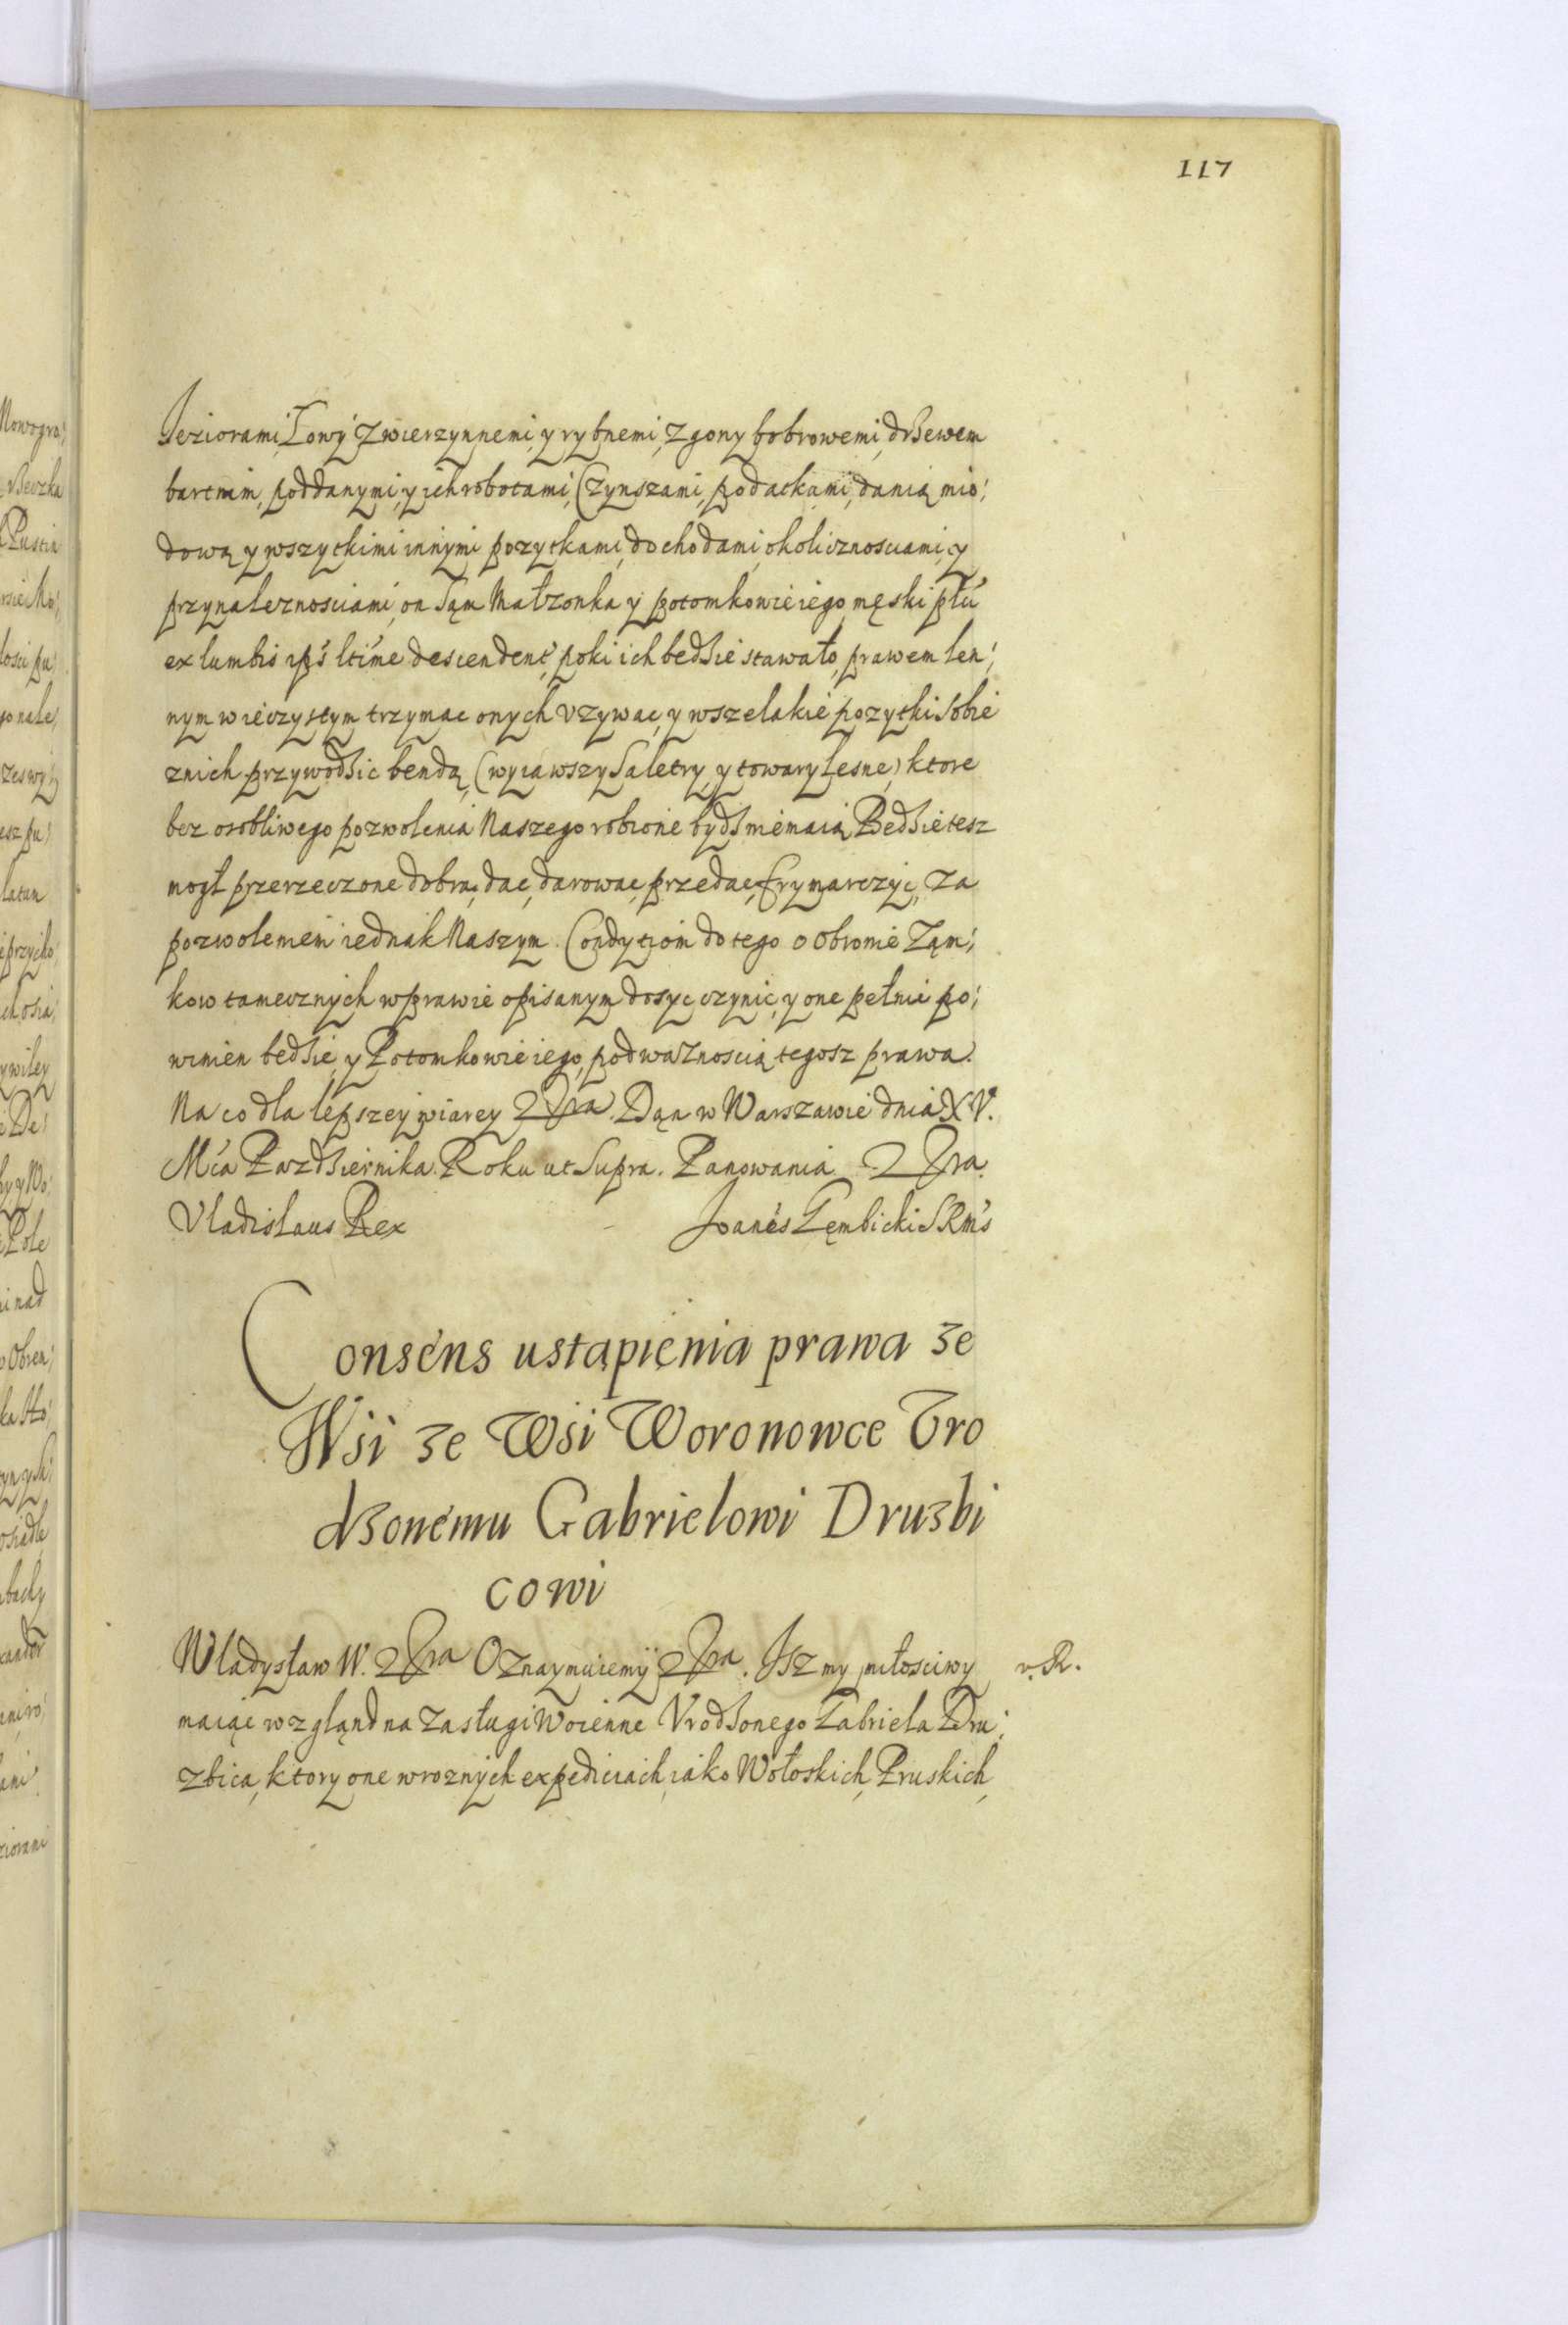 117
Ieziorami, Łowy Zwierzynnemi, y rybnemi, Zgony bobrowemi, drzewem
bartnim, poddanymi, y ich robotami, Czynszami, podatkami, danią mio:
dową y wszytkimi innymi pozytkami, dochodami, okolicznosciami, y
przynaleznosciami, on Sąm Małzonka y potomkowie iego męski płú
ex lumbis ips ltime descendent, poki ich bedzie stawało, prawem len:
nym wieczystym trzymac onych vzywac, y wszelakie pozytki Sobie
znich przywodzic bendą, (wyiawszy Saletry, y towary Lesne) ktore
bez osobliwego pozwolenia Naszego robione bydz niemaią Bedzie tesz
mogł przerzeczone dobra, dac, darowac, przedac, frymarczyc, za
pozwoleniem iednak Naszym. Condytiom do tego o obronie Ząm:
kow tamecznych w prawie opisanym dosyc czynic, y one pełnic po:
winien bedzie, y Potomkowie iego, pod waznoscią tegosz prawa.
Na co dla lepszey wiarey Dąn w Warszawie dnia XV.
Mca Pazdziernika. Roku ut Supra. Panowania
Vladislaus Rex Joanes Gembicki SRMs
Consens ustąpienia prawa ze
Wsi ze Wsi Woronowce Vro
dzonemu Gabrielowi Druzbi
cowi
Wladysław W. Oznaymuiemy . Isz my miłosciwy v. R.
maiąc wzgląnd na Zasługi Woienne Vrodzonego Gabriela Dru:
zbica, ktory one wroznych expediciach, iako Wołoskich, Pruskich,
Nowogro:
Pustin
ywiley
Pole
inad
ziorami